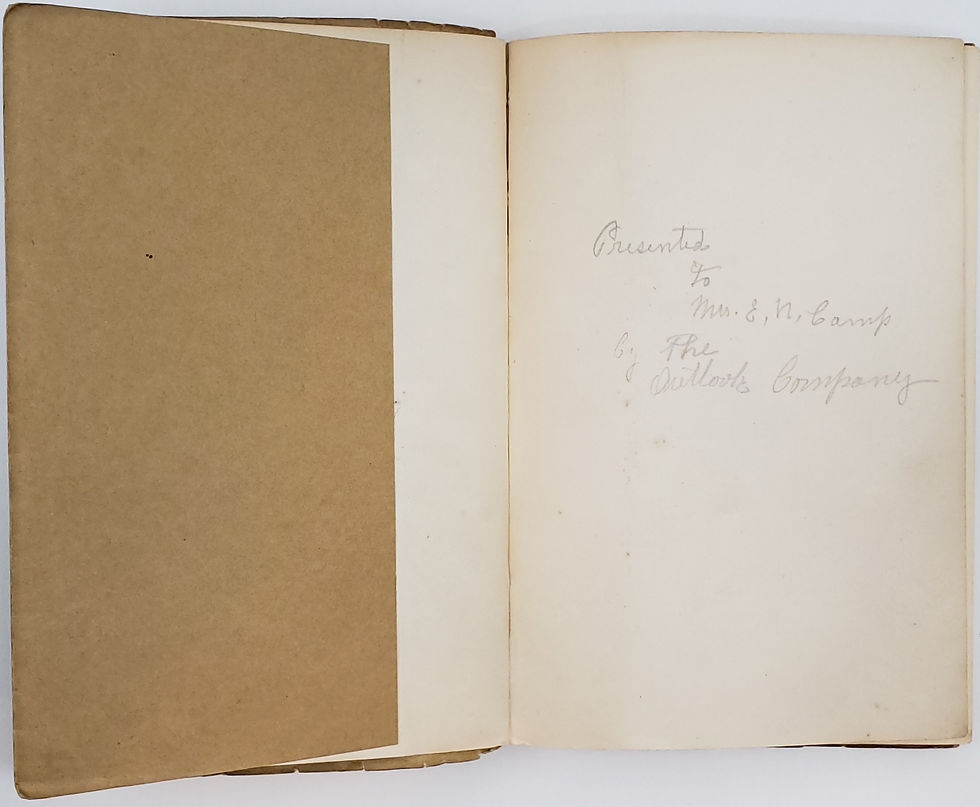 Presented
to
Mrs. E. N. Camp
by The
Outlook Company